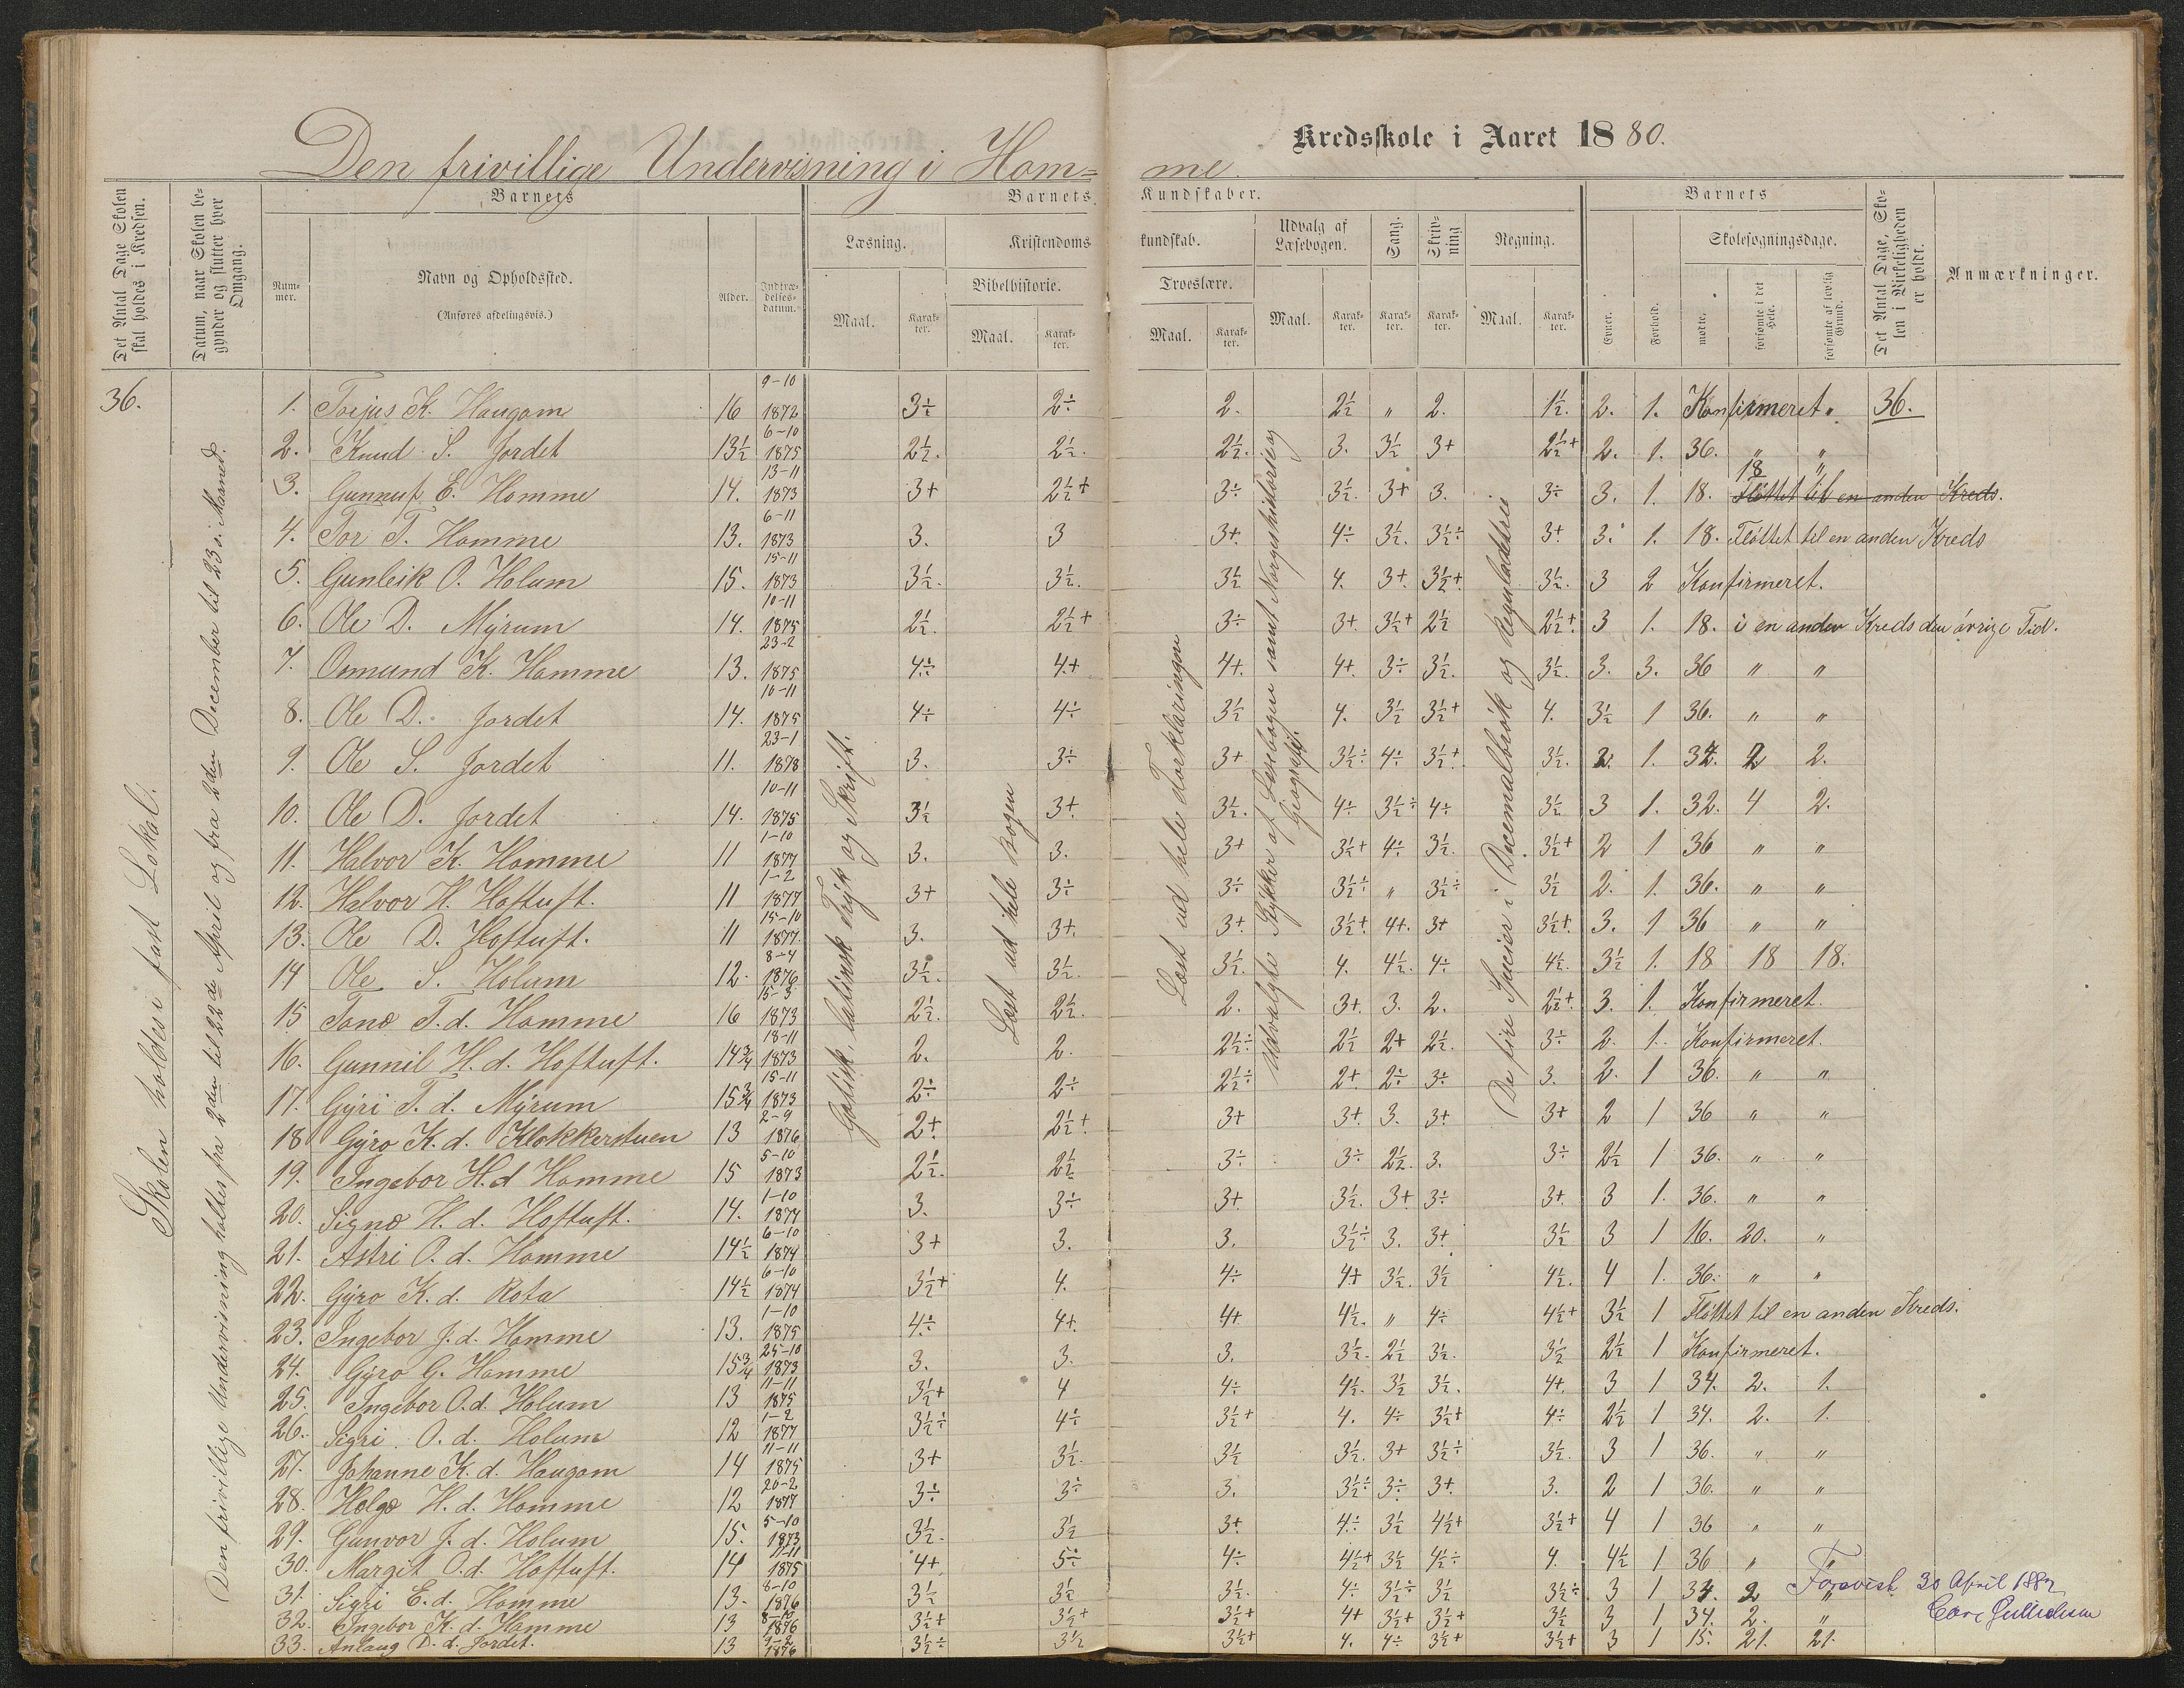 Den frivillige Undervisning i Hom=
me. Kredsskole i Aaret 1880.
Det Antal Dage Skolen skal holdes i Kredsen.
Datum, naar Skolen begynder og slutter hver Omgang.
Barnets
Nummer. Navn og Opholdssted. (Anføres afdelingsvis.) Alder. Indtrædelsesdatum.
Barnets Kundskaber.
Læsning. Maal. Karakter.
Kristendomskundskab.
Bibelhistorie. Maal. Karakter.
Troeslære. Maal. Karakter.
Udvalg af Læsebogen. Maal. Karakter.
Sang. Karakter.
Skrivning Karakter.
Regning. Maal. Karakter.
Barnets
Evner. Forhold.
Skolesøgningsdage.
mødte. forsømte i det Hele. forsømte af lovlig Grund.
Det Antal Dage, Skolen i Virkeligheden er holdt.
Anmærkninger.
36.
Skolen holdes i fast Lokal.
Den frivillige Undervisning holdes fra 2den til 22de April og fra 2den December til 23 i Maaned.
Gotisk, latinsk Tryk og Skrift.
Læst ud hele Bogen
Læst ud hele Forklaringen
Udvalgte Stykker af Læsebogen samt Norgeshistorie og Geografi.
De fire Specier i Decemalbrøk og Regulaldetrie
1. Torjus K. Haugom 16 9-10 1872 3÷ 2÷ 2. 2½ " 2. 1½. 2. 1. Konfirmeret " 36.
2. Knud S. Jordet 13½ 6-10 1875 2½. 2½. 2½. 3. 3½ 3+ 2½+ 2. 1. 36. " "
3. Gunnuf E. Homme 14. 13-11 1873 3+ 2½+ 3÷ 3½. 3+ 3. 3÷ 3. 1. 18. 18 " Fløttet til en anden Kreds.
4. Tor T. Homme 13. 6-11 1873 3. 3 3+. 4÷ 3½. 3½÷ 3+ 3. 1. 18. Fløttet til en anden Kreds
5. Gunleik O. Holum 15. 15-11 1873 3½. 3½. 3½ 4. 3+ 3½+. 3½. 3 2 Konfirmeret.
6. Ole D. Myrum 14. 10-11 1875 2½. 2½+ 3÷ 3+. 3½+ 2½ 2½+ 3 1. 18. i en anden Kreds den øvrige Tid.
7. Osmund K. Homme 13. 23-2 1875 4÷ 4+ 4+. 4+. 3÷ 3½. 3½. 3. 3. 36 " "
8. Ole D. Jordet 14. 10-11 1875 4÷ 4÷ 3½ 4. 3½ 3½+ 4. 3½ 1 36. " "
9. Ole S. Jordet 11. 23-1 1878 3. 3÷ 3+ 3½÷ 4÷ 3½+ 3½. 2. 1. 34. 2 2.
10. Ole D. Jordet 14. 10-11 1875 3½ 3+ 3½. 4÷ 3½÷ 4÷ 3½ 3 1. 32. 4 2.
11. Halvor K. Homme 11 1-10 1877 3. 3. 3+ 3½+ 4÷ 3½. 3½+ 2 1 36 " "
12. Halvor H. Hoftuft. 11 1-2 1877 3+ 3÷ 3÷ 3½÷ " 3½÷ 3½ 2. 1. 36. " "
13. Ole D. Hoftuft. 11 15-10 1877. 3. 3+. 3+. 3½+. 4+. 3+ 3½+. 3. 1 36 " "
14 Ole S. Holum 12. 8-4 1876 3½. 3½. 3½. 4. 4½. 4÷ 4½. 3½ 1. 18 18 18.
15 Tone T. d. Homme 16 15-3 1873 2½. 2½. 2. 3+. 3. 2. 2½+. 3. 1. Konfirmeret.
16. Gunnil H. d. Hoftuft. 14¾ 18-11 1873 2. 2. 2½÷ 2½ 2+ 2½. 3÷ 2. 1. Konfirmeret.
17. Gyri T. d. Myrum 15¾ 15-11 1873 2÷ 2÷ 2½÷ 2+. 2÷ 3÷ 3. 2. 1 36. " "
18 Gyro K. d. Klokkerstuen 13 2-9 1876 2+. 2½+. 3+ 3+. 3. 3+ 3+ 2 1 36 " "
19. Ingebor H. d Homme 15 5-10 1873 2½. 2½ 3÷ 3÷ 2½. 3. 3÷ 2½ 1 36. " "
20. Signe H. d. Hoftuft. 14. 1-10 1874 3. 3÷ 3+ 3½. 3+ 3÷ 3+. 3 1. 36. " "
21. Astri O. d. Homme 14½ 6-10 1874 3+ 3. 3. 3½÷ 3. 3+ 3½ 3 1 16. 20. "
22. Gyro K. d. Rota 14½ 6-10 1874 3½+ 4. 4÷ 4+ 3½. 3½ 4½. 4 1. 36. " "
23. Ingebor J. d. Homme 13. 1-10 1875 4÷ 4+. 4+ 4½. " 4÷ 4½+ 3½ 1 Fløttet til en anden Kreds.
24. Gyro G. Homme 15¾ 25-10 1873 3. 3. 3. 3½. 2½ 3½. 3½ 2½ 1 Konfirmeret.
25. Ingebor O. d. Holum 13 11-11 1875 3½+ 4 4÷ 4½. 3½ 3½. 4+. 3 1 34. 2. 1.
26. Sigri O. d. Holum 12 1-2 1877 3½÷ 4÷ 3½+ 4. 4÷ 3½+ 4÷ 2½ 1 34. 2. 1.
27. Johanne K. d. Haugom 14 11-11 1875 3+ 3½. 3½ 3½. 3+ 3½÷ 3½. 3 1 36. " "
28. Helge H. d. Homme 12 20-2 1877 3÷ 3÷ 3. 3½÷ 3÷ 3+. 3. 2 1 36. " "
29. Gunvor J. d. Holum 15. 5-10 1873 3½. 3½ 3+. 4÷ 3½ 4½+ 3½+ 4 1 36 " "
30. Margit O. d. Hoftuft. 14 11-11 1875 4+. 5÷ 4÷ 4½+ 3½ 4½÷ 4. 4½ 1 36 " "
31. Sigri E. d. Homme 13. 8-10 1876 3½ 3½ 3½. 4÷ 3½÷ 3½ 3½÷ 3 1 34. 2 "
32. Ingebor K. d. Homme 13 8-10 1876 3½+ 3½+ 3½+ 4+ 3½+ 3½+ 3½ 3 1 34. 2. "
33. Anlaug D. d. Jordet. 13 9-2 1876 3½÷ 3½ 3½+ 4. 4÷ 3½+ 3½+ 3 1 15. 21. 21.
Forevist 30 April 1882